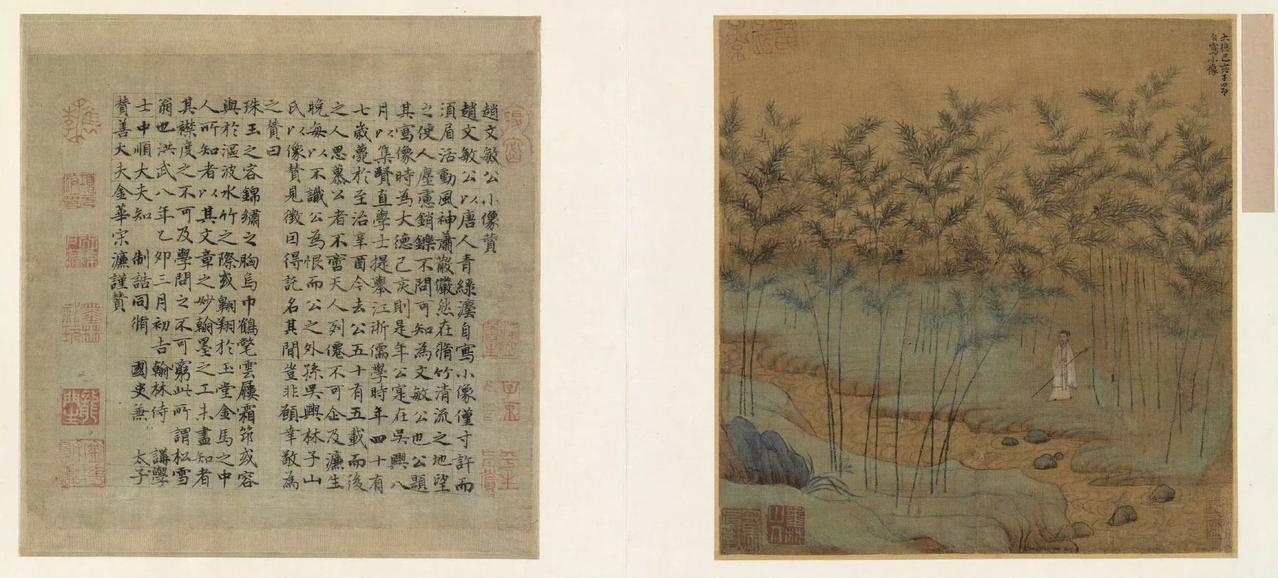 大德己亥子昂
自寫小像
趙文敏公小像贊
趙文敏公以唐人青綠灋自寫小像僅寸許而
須眉活動風神蕭散儼然在脩竹清流之地望
之使人塵慮銷鑠不問可知為文敏公也公題
其寫像時為大德己亥則是年公寔在吳興八
月以集賢直學士提舉江浙儒學時年四十有
七歲薨於至治辛酉今去公五十有五載而後
之人思慕公者不啻天人列僊不可企及濂生
晚每以不識公為恨而公之外孫吳興林子山
氏以像贊見徵因得託名其間豈非願幸敬為
之贊曰
珠玉之容錦繡之胸烏巾鶴氅雲屨霜筇或容
與於溫波水竹之際或翱翔於玉堂金馬之中
人所知者以其文章之妙翰墨之工未盡知者
其襟度之不可及學問之不可窮此所謂松雪
翁也洪武八年乙卯三月初吉翰林侍 講學
士中順大夫知 制誥同脩 國史兼 太子
贊善大夫金華宋濂謹贊